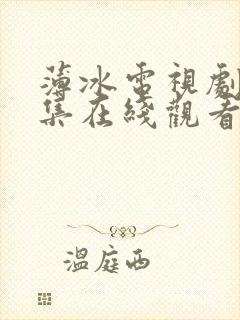 薄冰電視劇
集在綫觀看
溫庭西